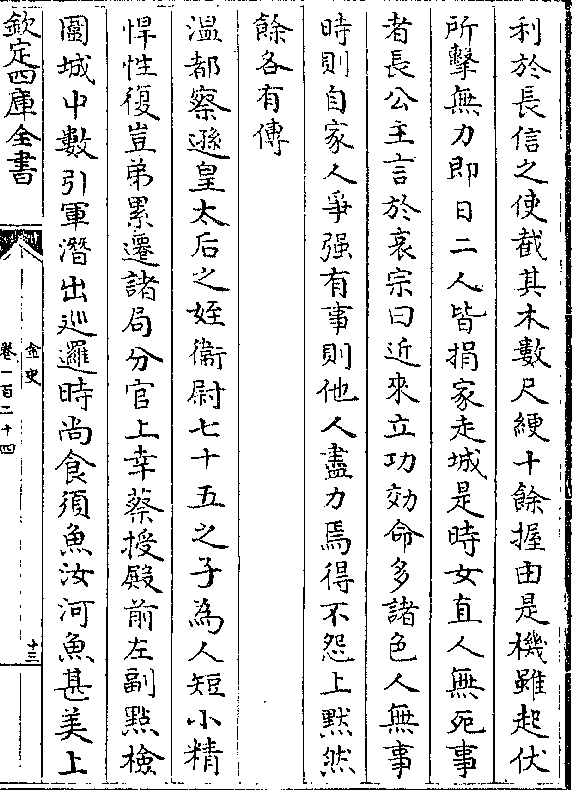 利於長信之使截其木數尺綆十餘握由是機雖起伏
所擊無力即日二人皆捐家走城是時女直人無死事
者長公主言於哀宗曰近來立功効命多諸色人無事
時則自家人爭强有事則他人盡力焉得不怨上默然
餘各有傳
溫都察遜皇太后之姪衞尉七十五之子為人短小精
悍性復豈弟累遷諸局分官上幸蔡授殿前左副點檢
圍城中數引軍潛出巡邏時尚食須魚汝河魚甚美上
欽定四庫全書
金史
卷一百二十四
十三